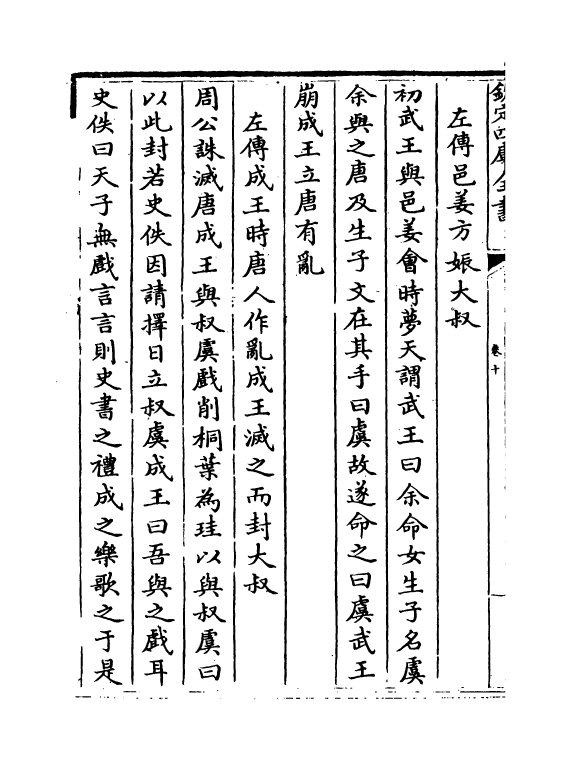 欽定四庫全書
卷十
左傳邑姜方娠大叔
初武王與邑姜會時夢天謂武王曰余命女生子名虞
余與之唐及生子文在其手曰虞故遂命之曰虞武王
崩成王立唐有亂
左傳成王時唐人作亂成王滅之而封大叔
周公誅滅唐成王與叔虞戲削桐葉為珪以與叔虞曰
以此封若史佚因請擇日立叔虞成王曰吾與之戲耳
史佚曰天子無戲言言則史書之禮成之樂歌之于是